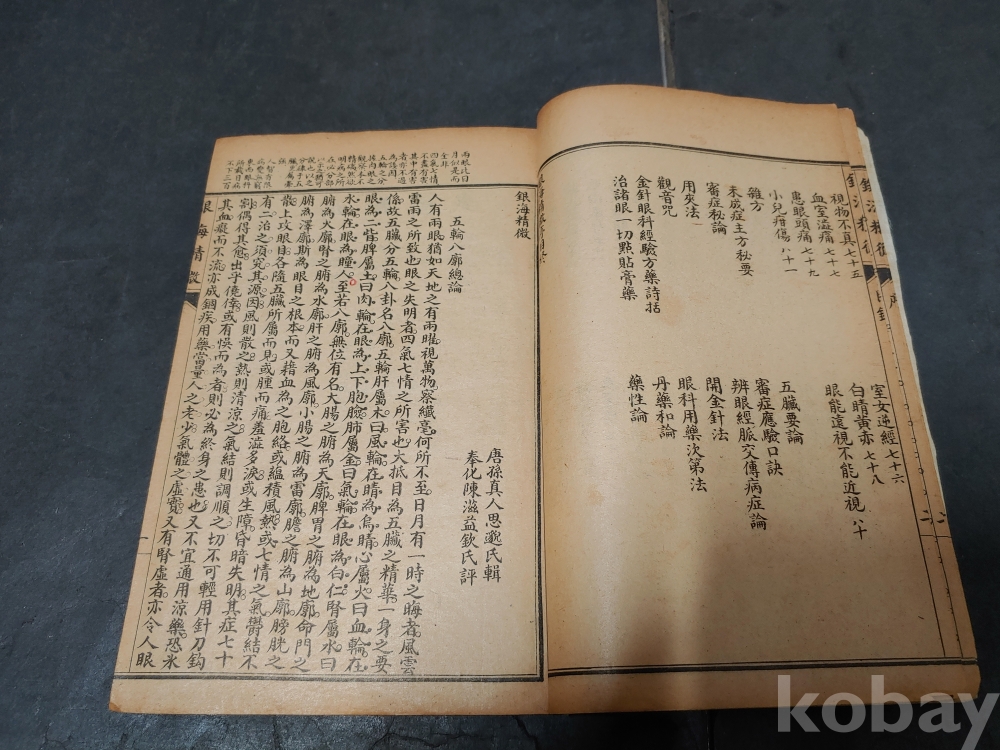 視物不真七十五
血室澁痛七十七
患眼頭痛七十九
小兒疳傷八十一
雜方
未成症主方秘要
審症秘論
用灸法
觀音咒
金針眼科經驗方藥詩括
治諸眼一切點貼膏藥
室女逆經七十六
白睛黃赤七十八
眼能遠視不能近視八十
五臟要論
審症應驗口訣
辨眼經脈交傳病症論
開金針法
眼科用藥次第法
丹藥和論
藥性論
銀海精微
唐孫真人思邈氏輯
奉化陳滋益欽氏評
五輪八廓總論
人有兩眼猶如天地之有兩曜視萬物察纖毫何所不至日月有一時之晦者風雲
雷雨之所致也眼之失明者四氣七情之所害也大抵目為五臟之精華一身之要
係故五臟分五輪八卦名八廓五輪肝屬木曰風輪在睛為烏睛心屬火曰血輪在
眼為二眥脾屬土曰肉輪在眼為上下胞瞼肺屬金曰氣輪在眼為白仁腎屬水曰
水輪在眼為瞳人至若八廓無位有名大腸之腑為天廓脾胃之腑為地廓命門之
腑為火廓腎之腑為水廓肝之腑為風廓小腸之腑為雷廓膽之腑為山廓膀胱之
腑為澤廓斯為眼目之根本而又藉血為之胞絡或蘊積風熱或七情之氣鬱結不
散上攻眼目各隨五臟所屬而見或腫而痛羞澁多淚或生障昏暗失明其症七十
有二治之須究其源因風則散之熱則清涼之氣結則調順之切不可輕用針刀鈎
割偶得其愈出乎僥倖或有悞而為者則必為終身之患也又不宜通用涼藥恐氷
其血凝而不流亦成錮疾用藥當量人之老少氣體之虛實又有腎虛者亦令人眼
銀海精微
一
kobay